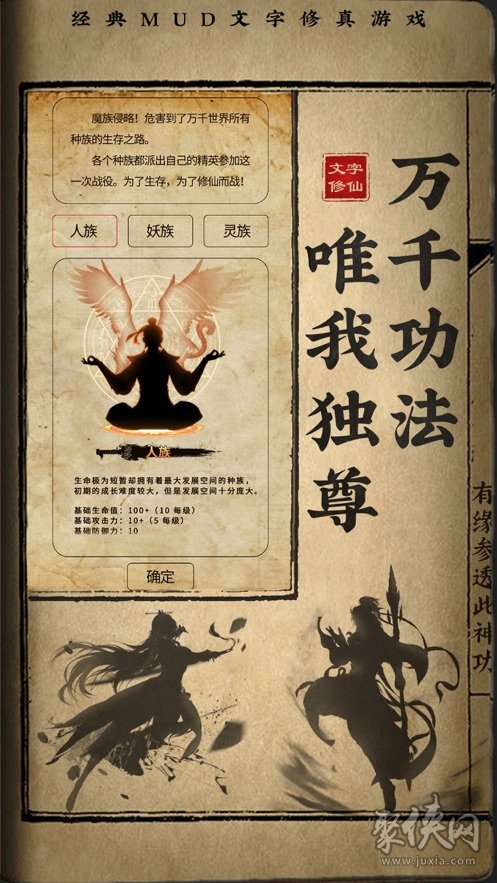 经典MUD文字修真游戏
魔族侵略！危害到了万千世界所有
种族的生存之路。
各个种族都派出自己的精英参加这
一次战役。为了生存，为了修仙而战！
人族
妖族
灵族
人族
生命极为短暂却拥有着最大发展空间的种族，
初期的成长难度较大，但是发展空间十分庞大。
基础生命值：100+（10 每级）
基础攻击力：10+（5 每级）
基础防御力：10
确定
文字
修仙
万千功法
唯我独尊
有缘参透此神功
聚侠网
www.juxia.com